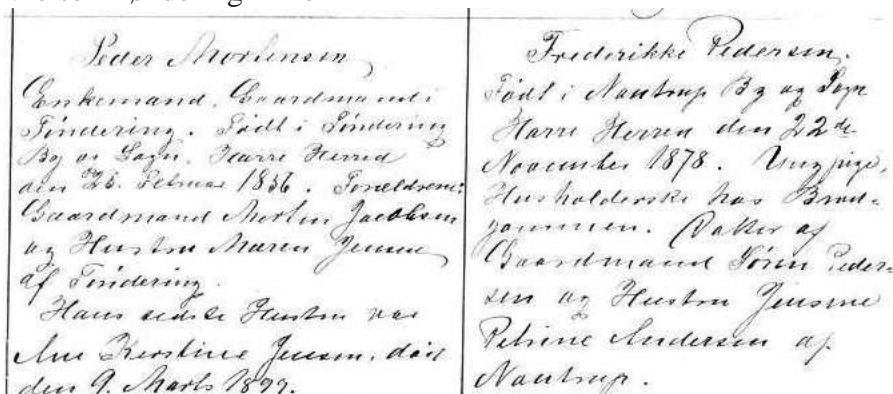 Peder Mortensen
Enkemand. Gaardmand i
Tøndering. Født i Tøndering
By og Sogn. Harre Herred
den 25. Februar 1856. Forældrene:
Gaardmand Morten Jacobsen
og Hustru Maren Jensen
af Tøndering.
Hans sidste Hustru var
Ane Kirstine Jensen, død
den 9. Marts 1899.
Frederikke Pedersen.
Født i Nautrup By og Sogn
Harre Herred den 22de
November 1878. Ung pige,
Husholderske hos Brud-
gommen. Datter af
Gaardmand Søren Peder-
sen og Hustru Jensine
Petrine Andersen af
Nautrup.